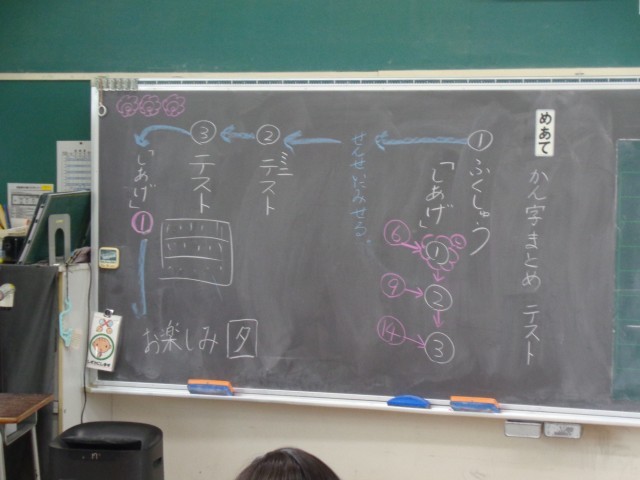 めあて
かん字まとめ テスト
①ふくしゅう
「しあげ」
⑥
①
⑨
②
⑭
③
せんせいにみせる。
②ミニテスト
③テスト
「しあげ」①
お楽しみ 夕